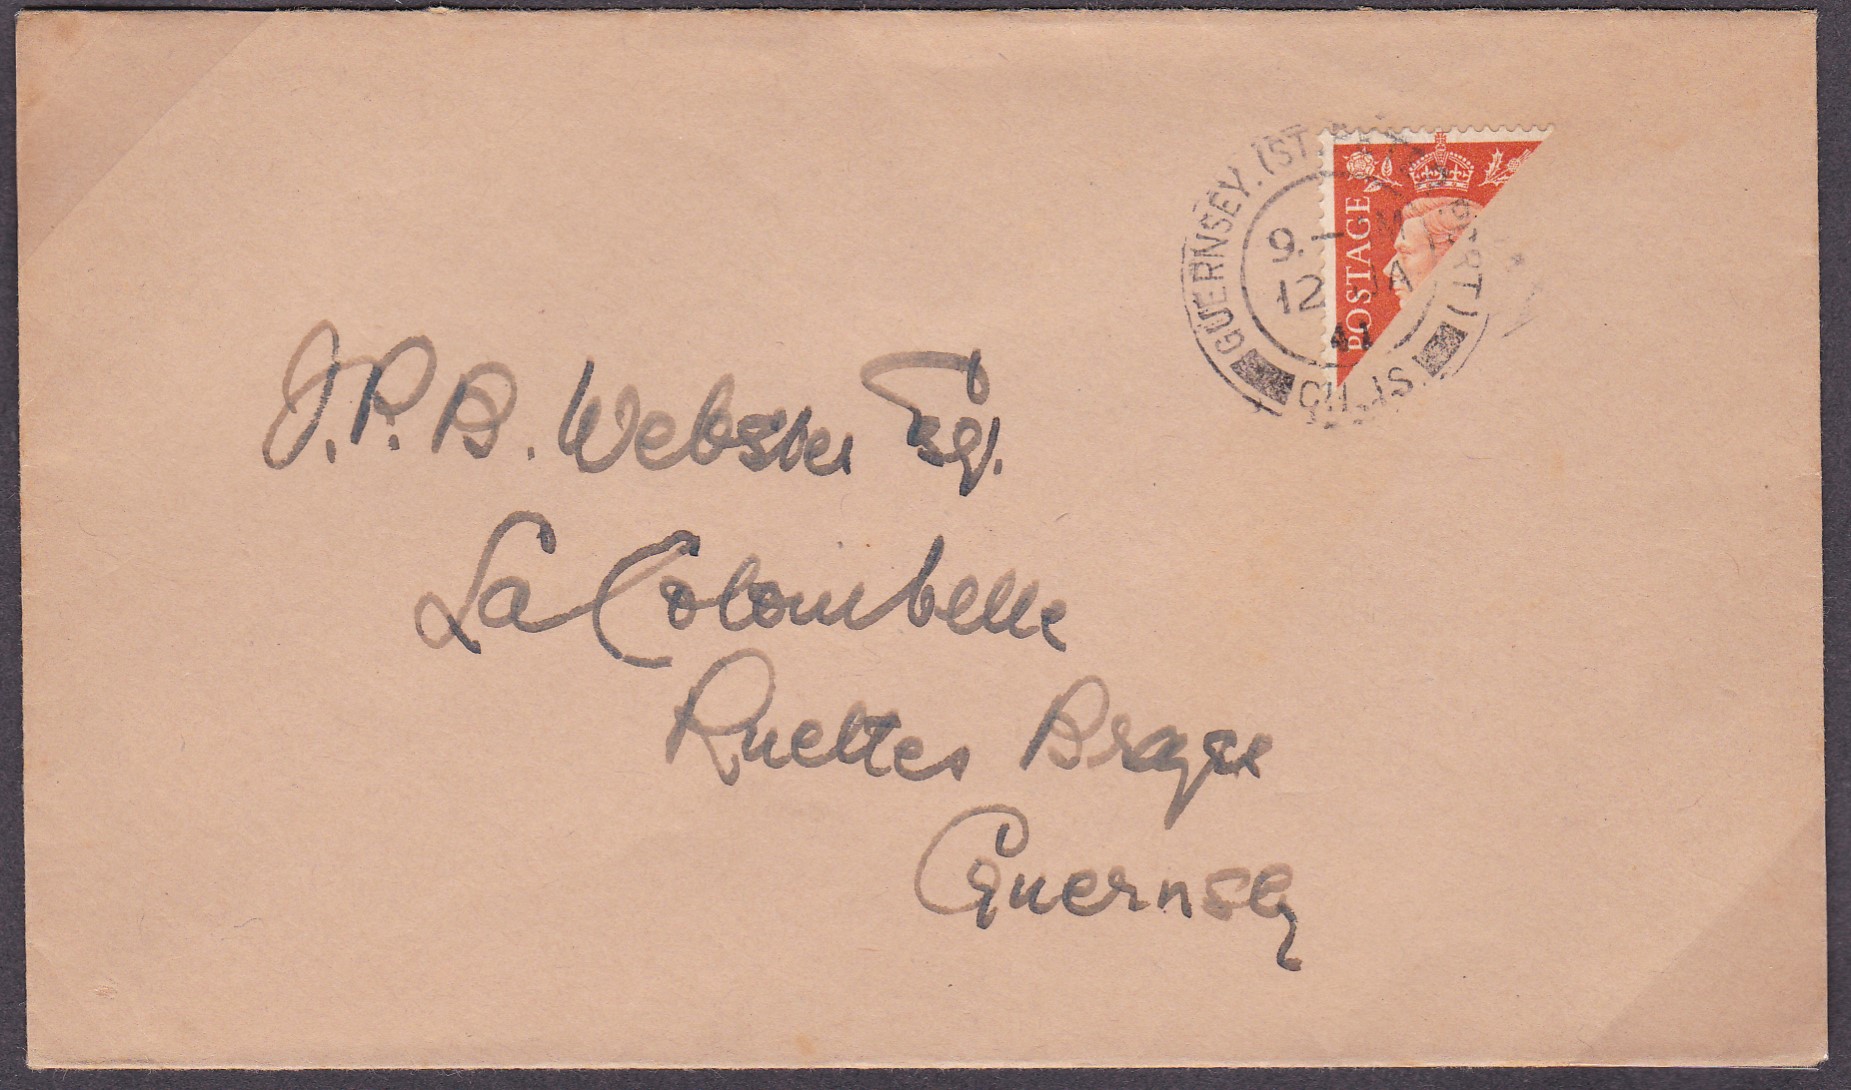 GUERNSEY. (ST. PETER PORT)
CH. IS.
9. - M
12 JA
41
POSTAGE
J. P. B. Webster Esq.
La Colombelle
Ruettes Braye
Guernsey